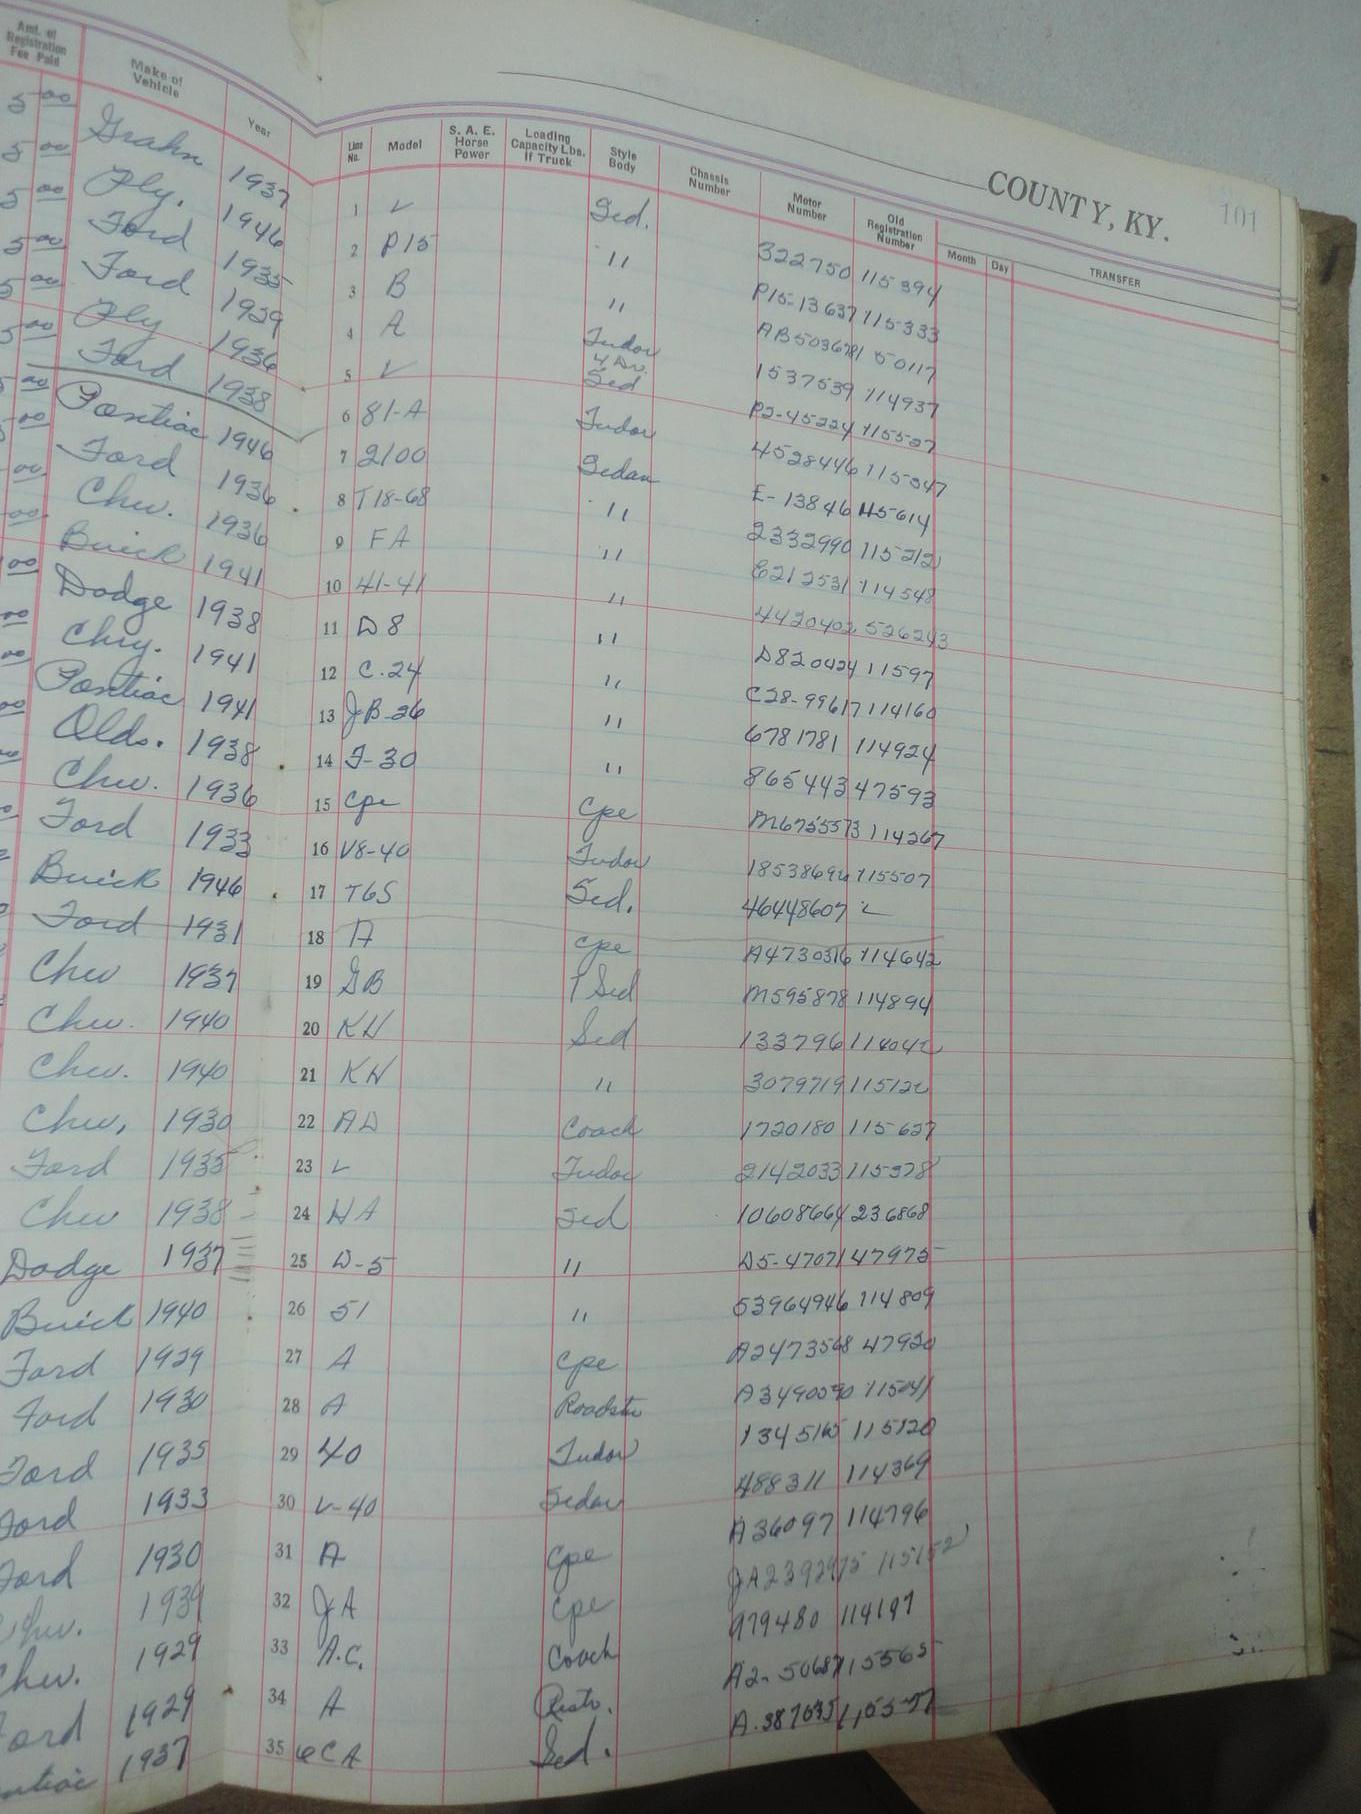 Amt. of Registration Fee Paid | Make of Vehicle | Year | Line No. | Model | S. A. E. Horse Power | Loading Capacity Lbs. If Truck | Style Body | Chassis Number | Motor Number | Old Registration Number | Month | Day | TRANSFER
COUNTY, KY. 101
5 00 Grahn 1937 1 ✓ Sed. 322750 115394
5 00 Ply. 1946 2 P15 " P15-13637 115333
5 00 Ford 1935 3 B " AB5036781 50117
5 00 Ford 1929 4 A Tudor 1537539 114937
5 00 Ply 1936 5 ✓ 4 Dr. Sed P2-45224 115527
5 00 Ford 1938 6 81-A Tudor 4528446 115347
5 00 Pontiac 1946 7 2100 Sedan E-13846 115614
00 Ford 1936 8 T18-68 " 2332990 115212
00 Chev. 1936 9 FA " 6212531 114548
00 Buick 1941 10 41-41 " 4420402 526243
00 Dodge 1938 11 D8 " D820424 11597
00 Chry. 1941 12 C.24 " C28-99617 114160
00 Pontiac 1941 13 JB-26 " 6781781 114924
00 Olds. 1938 14 F-30 " 865443 47593
Chev. 1936 15 Cpe Cpe M6755573 114267
Ford 1933 16 V8-40 Tudor 18538694 115507
Buick 1946 17 T6S Sed. 46448607 ✓
Ford 1931 18 A Cpe A4730316 114642
Chev 1937 19 GB Sed M595878 114894
Chev. 1940 20 KH Sed 133796 114042
Chev. 1940 21 KH " 3079719 115122
Chev. 1930 22 AD Coach 1720180 115627
Ford 1935 23 ✓ Tudor 2142033 115378
Chev 1938 24 HA Sed 10608664 236868
Dodge 1937 25 D-5 " D5-47071 47975
Buick 1940 26 51 " 53964946 114809
Ford 1929 27 A Cpe A2473568 47920
Ford 1930 28 A Roadstr A3490590 115041
Ford 1935 29 40 Tudor 1345165 115120
Ford 1933 30 V-40 Sedan 488311 114369
Ford 1930 31 A Cpe A36097 114796
Chev. 1939 32 JA Cpe JA2392975 115152
Chev. 1929 33 A.C. Coach 979480 114197
Ford 1929 34 A Rstr. A2-50687 115565
1937 35 6CA Sed.